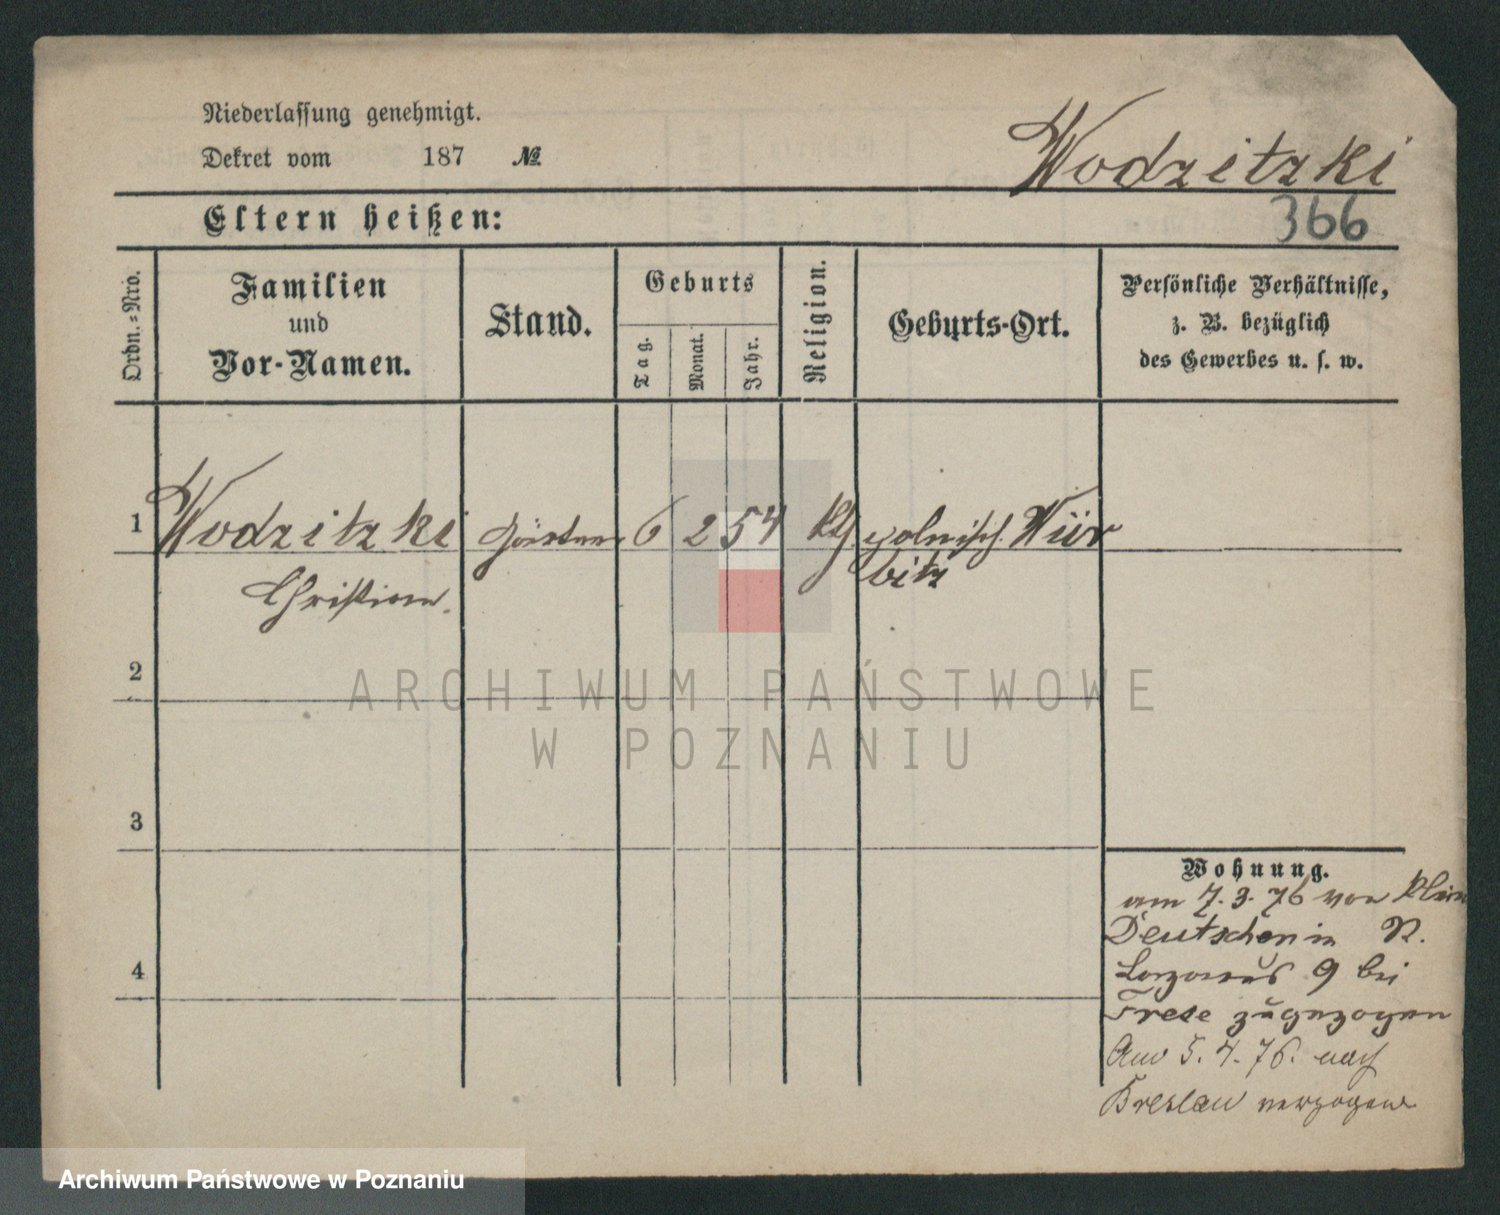 Niederlassung genehmigt.
Dekret vom 187 №
Wodzitzki
366
Eltern heißen:
Ordn.-Nro.
Familien
und
Vor-Namen.
Stand.
Geburts
Tag.
Monat.
Jahr.
Religion.
Geburts-Ort.
Persönliche Verhältnisse,
z. B. bezüglich
des Gewerbes u. s. w.
1 Wodzitzki Gärtner 6 2 54 kth polnisch. Wür
bitz
Christian.
2
3
4
Wohnung.
am 7.3.76 von Klein
Deutschen in St.
Lazarus 9 bei
Frese zugezogen
Am 5.4.76. nach
Breslau verzogen
ARCHIWUM PAŃSTWOWE
W POZNANIU
Archiwum Państwowe w Poznaniu